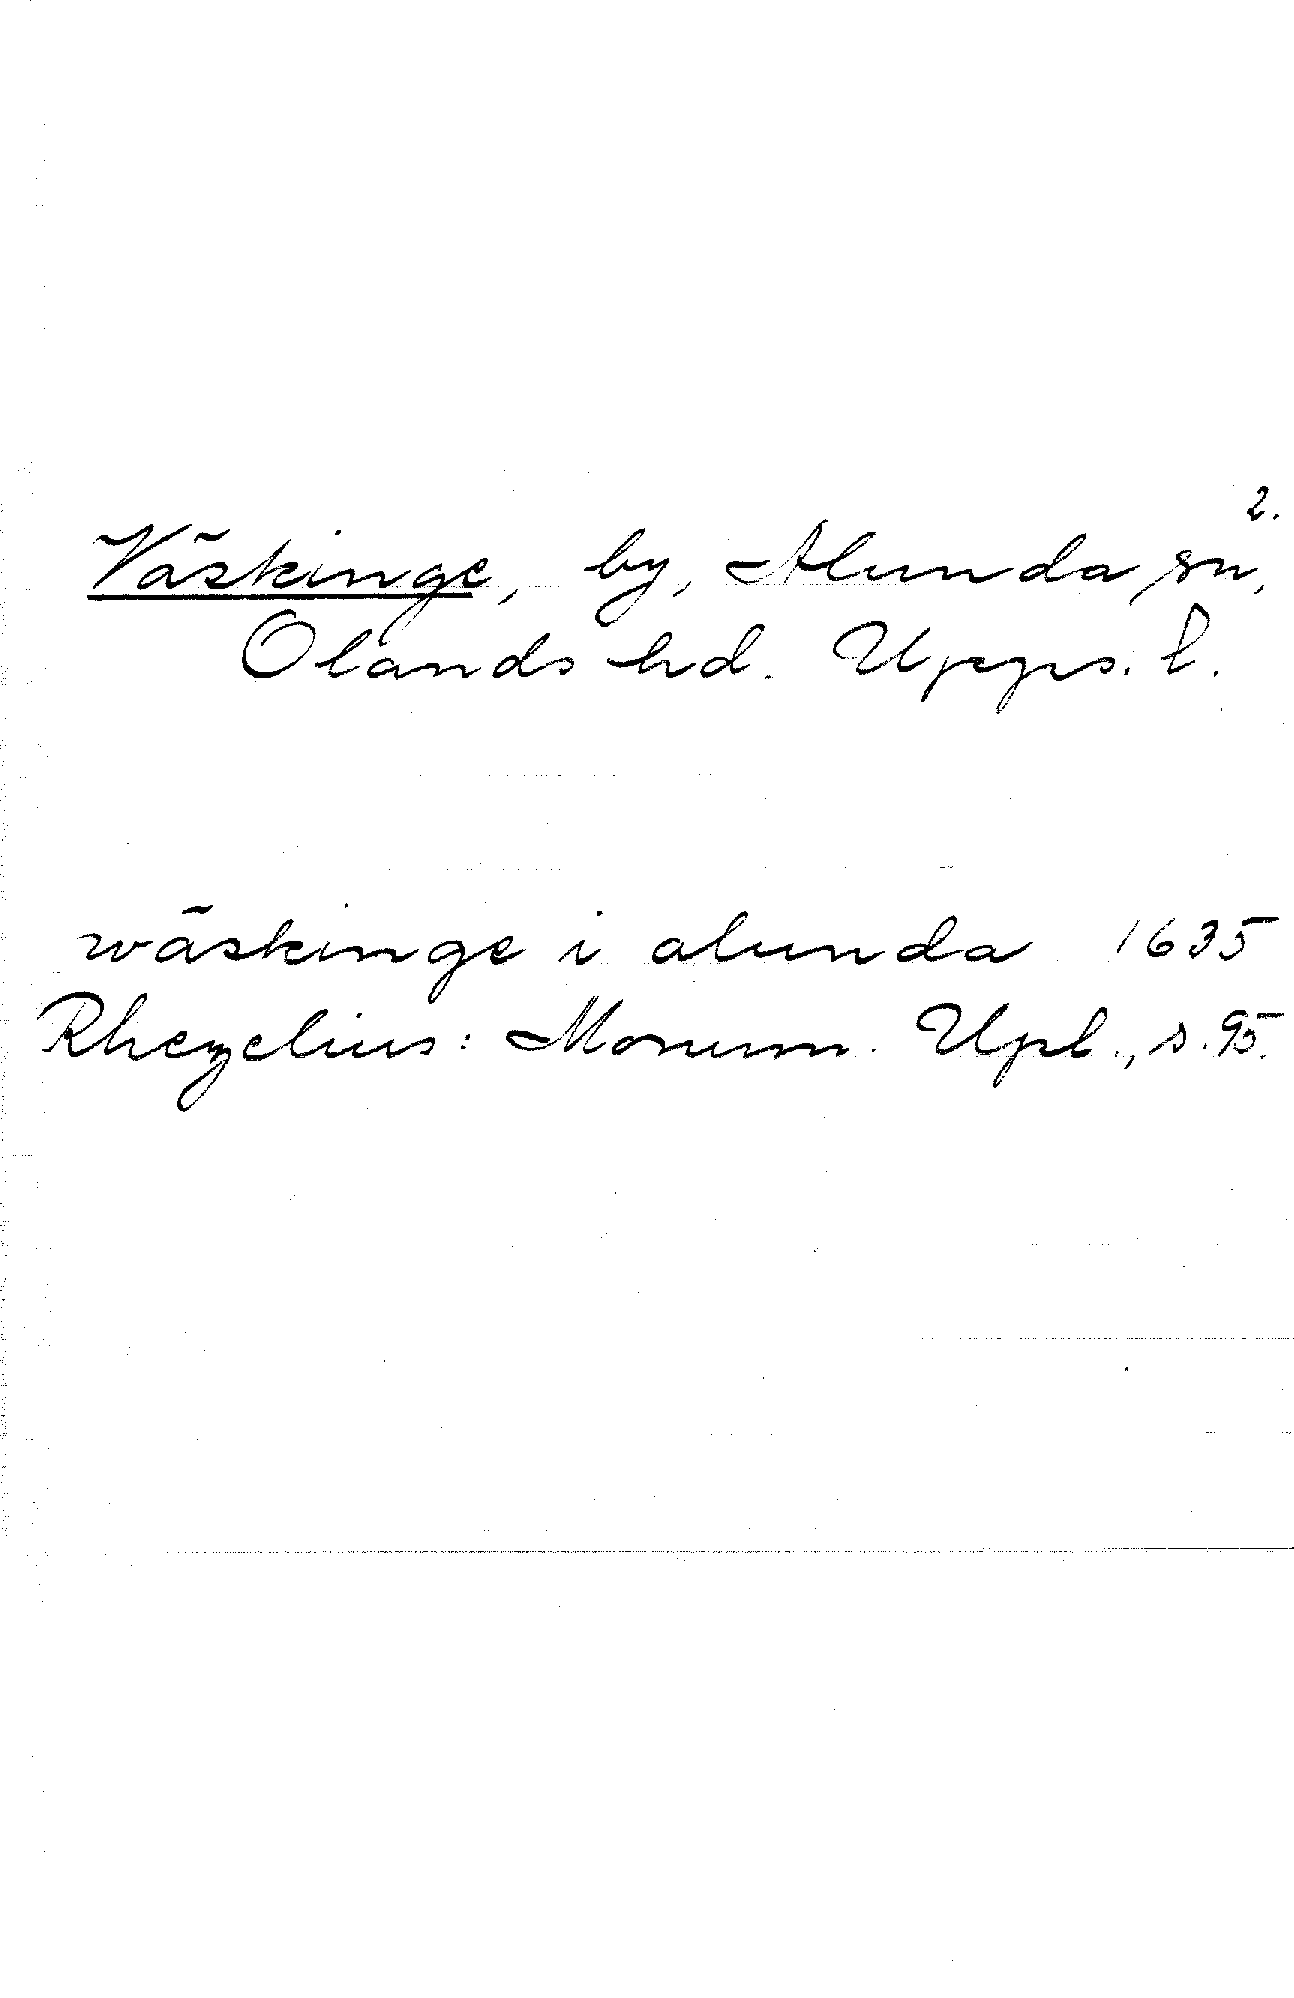 2.
Väskinge, by, Alunda sn,
Olands hd. Upps. l.
wäskinge i alunda 1635
Rhezelius: Monum. Upl., s. 95.